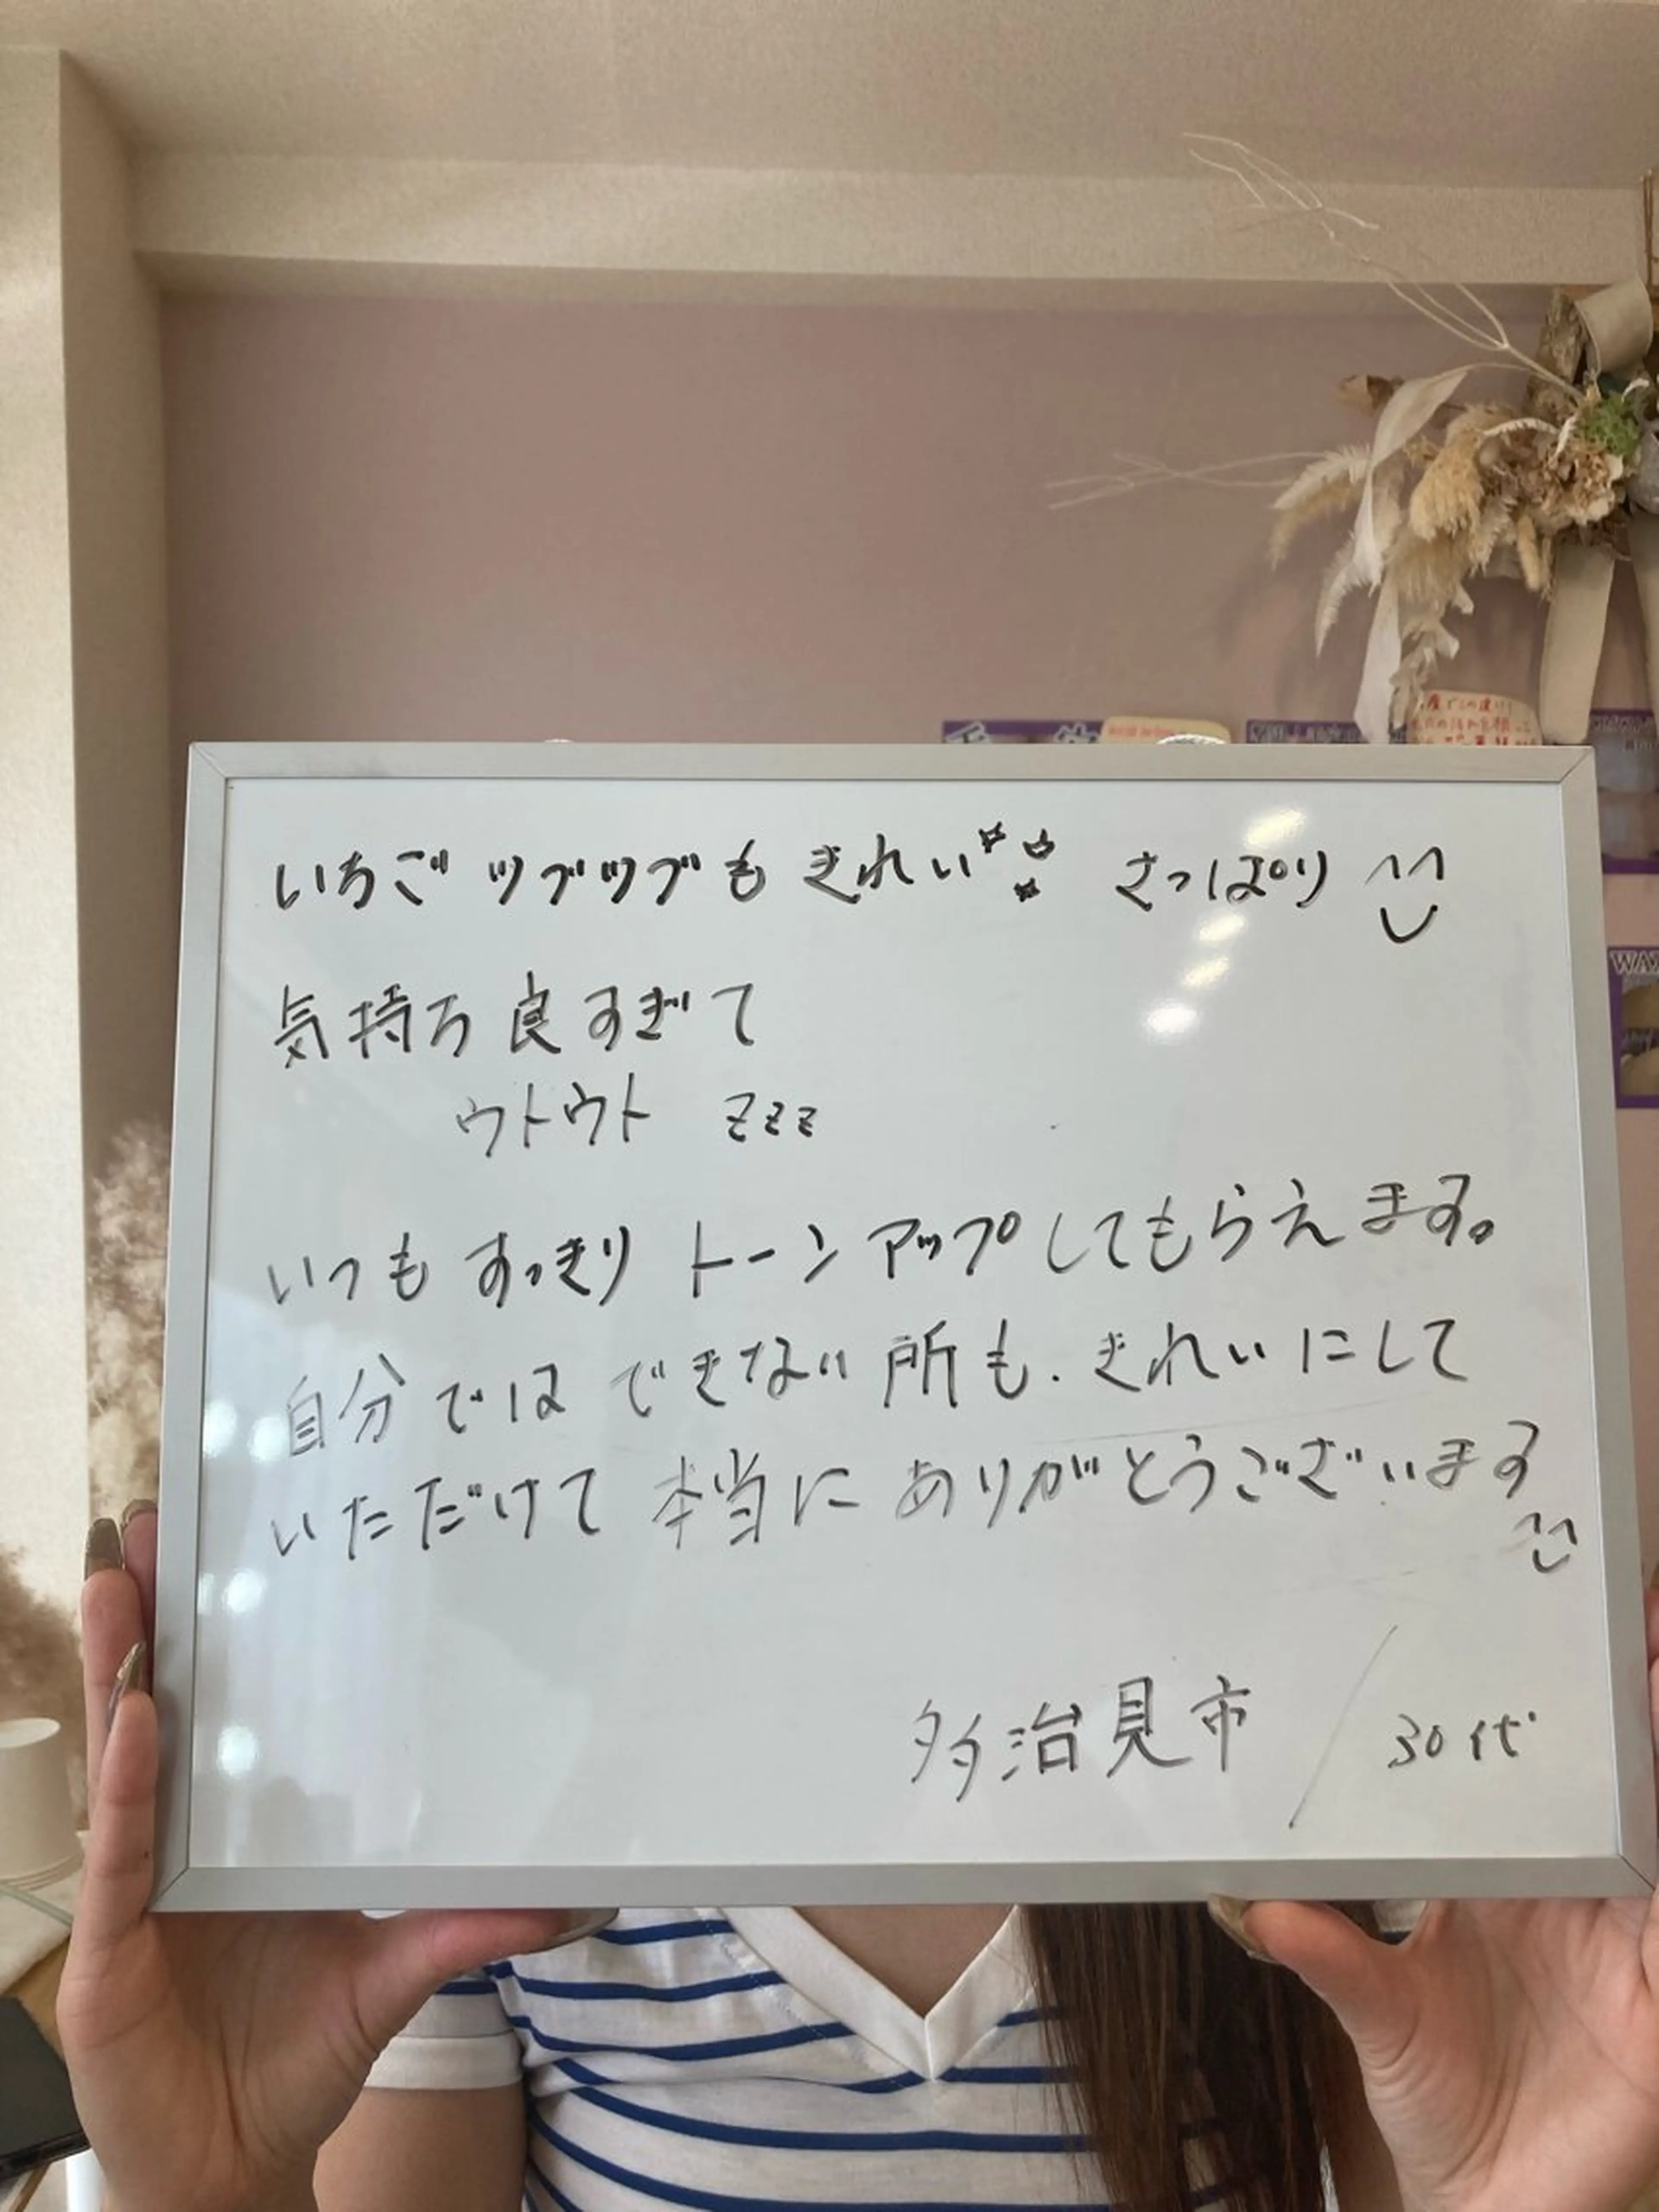 いちごツブツブもきれい さっぱり
気持ち良すぎて
ウトウト zzz
いつもすっきりトーンアップしてもらえます。
自分ではできない所も、きれいにして
いただけて本当にありがとうございます
多治見市 / 30代
WAX